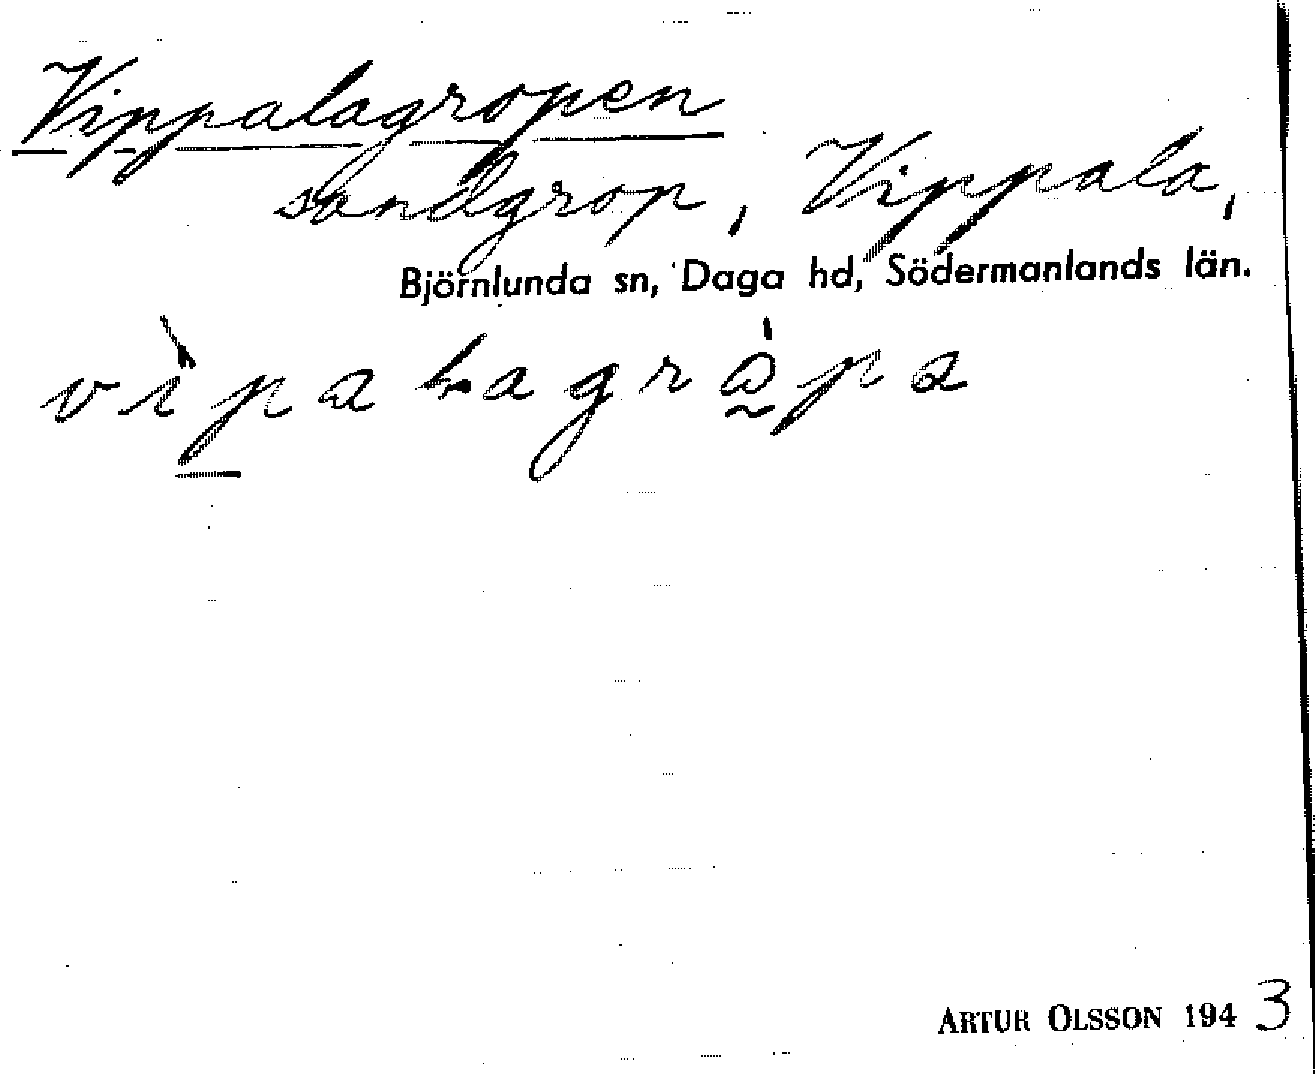 Vippalagropen
sandgrop, Vippala,
Björnlunda sn, Daga hd, Södermanlands län.
vìpalagråpa
ARTUR OLSSON 1943